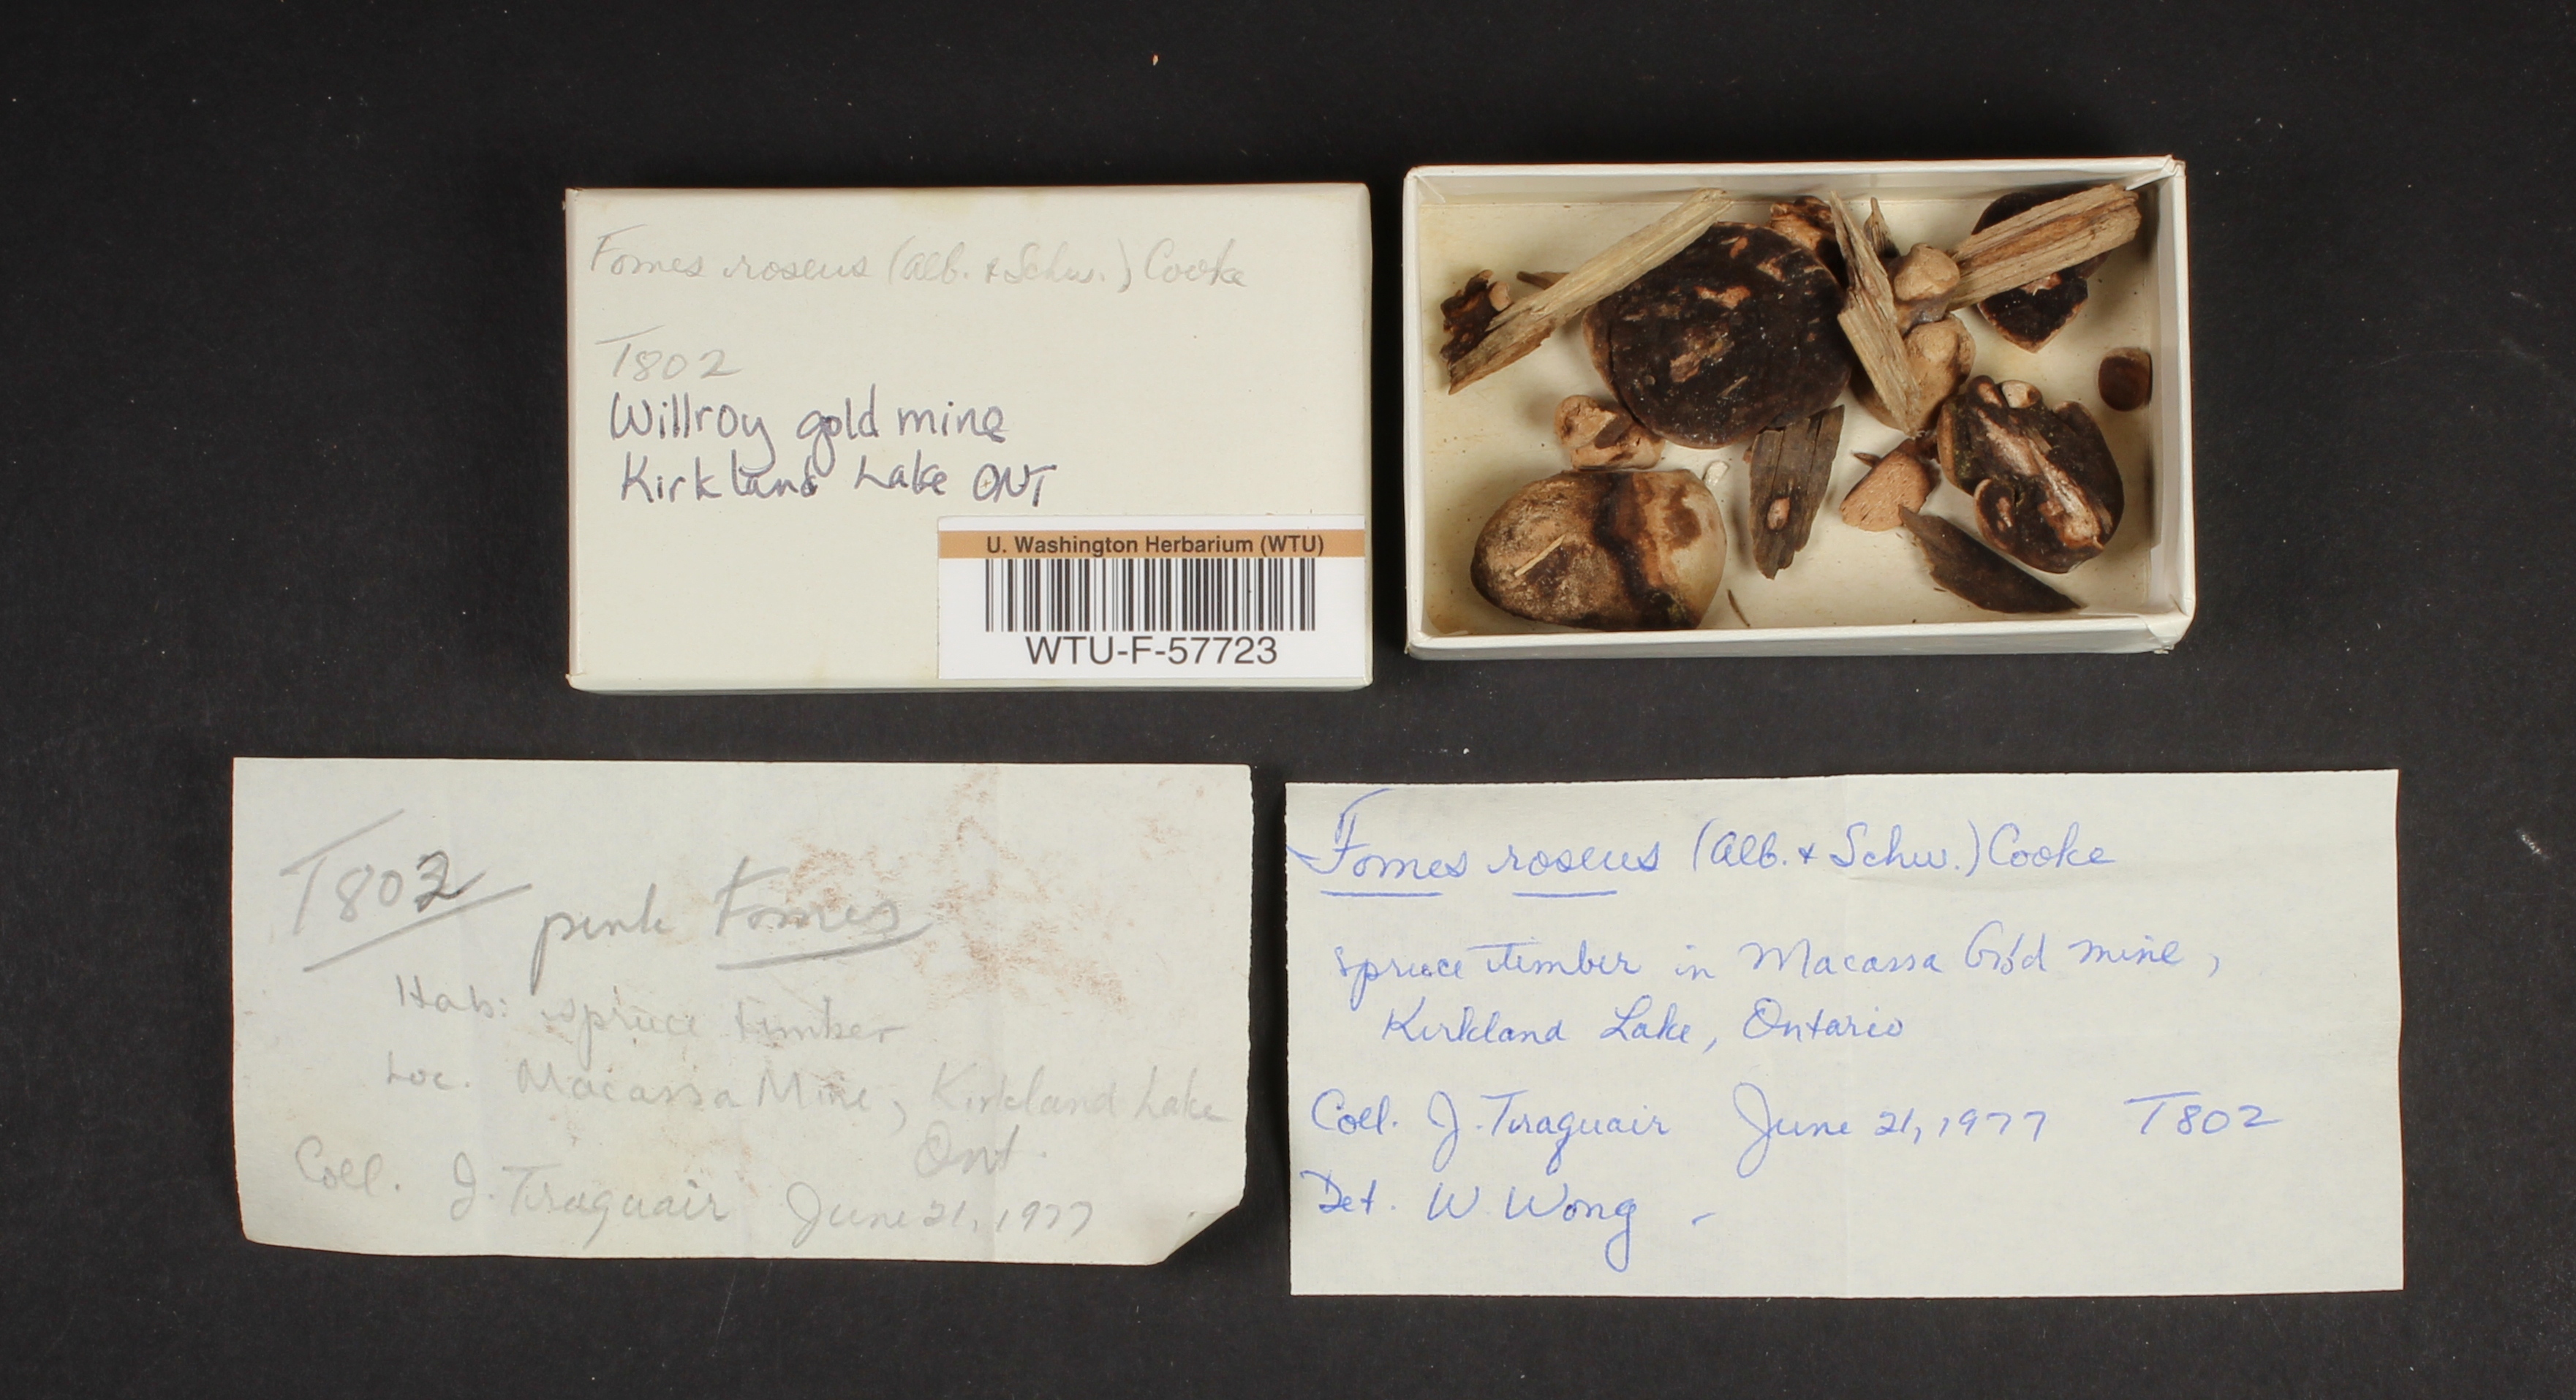 Fomes roseus (Alb. & Schw.) Cooke
T802
Willroy gold mine
Kirkland Lake ONT
U. Washington Herbarium (WTU)
WTU-F-57723
T802
pink Fomes
Hab: spruce timber
Loc. Macassa Mine, Kirkland Lake
Ont.
Coll. J. Traquair June 21, 1977
Fomes roseus (Alb. & Schw.) Cooke
spruce timber in Macassa Gold mine,
Kirkland Lake, Ontario
Coll. J. Traquair June 21, 1977 T802
Det. W. Wong -